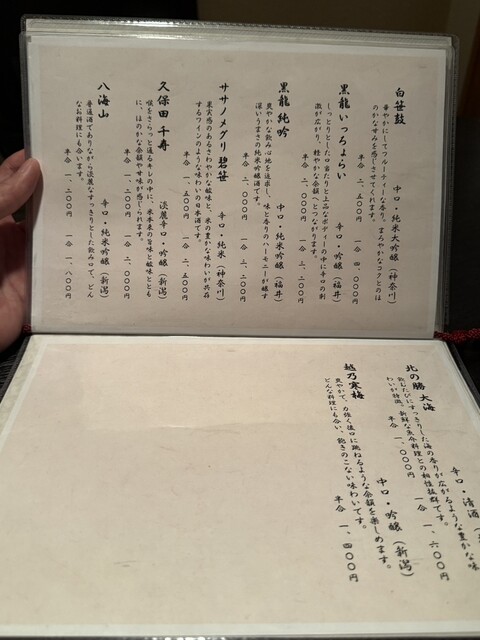 白笹鼓　中口・純米大吟醸（神奈川）
華やかにしてフルーティーな香り。まろやかなコクとのほ
のかな甘みを感じさせてくれます。
半合　二、五〇〇円　一合　四、〇〇〇円
黒龍 いっちょらい　辛口・吟醸（福井）
しっとりとした口当たりと上品なボディーの中に辛口の刺
激が広がり、軽やかな余韻へとつながります。
半合　一、五〇〇円　一合　二、二〇〇円
黒龍 純吟　中口・純米吟醸（福井）
爽やかな飲み心地を追求し、味と香りのハーモニーが醸す
深いうまさの純米吟醸酒です。
ササノメグリ 碧笹　辛口・純米（神奈川）
果実感のあるさわやかな酸味と、米の豊かな味わいが共存
するワインのような味わいの日本酒です。
半合　一、五〇〇円　一合　二、五〇〇円
久保田 千寿　淡麗辛口・吟醸（新潟）
喉をさらっと通るキレの中に、米本来の旨味と酸味ととも
に、ほのかな余韻や甘味が感じられます。
半合　一、二〇〇円　一合　二、〇〇〇円
八海山　辛口・吟醸（新潟）
普通酒でありながら淡麗なすっきりとした飲み口で、どん
なお料理にも合います。
半合　一、二〇〇円　一合　一、八〇〇円
北の勝 大海　辛口・清酒（
飲むたびにすっきりした海の香りが広がるような豊かな味
わいが特徴。新鮮な魚介料理との相性抜群です。
半合　一、〇〇〇円　一合　一、六〇〇円
越乃寒梅　中口・吟醸（新潟）
爽やかで、力強く後口に跳ねるような余韻を楽しめます。
どんな料理にも合い、飽きのこない味わいです。
半合　一、四〇〇円